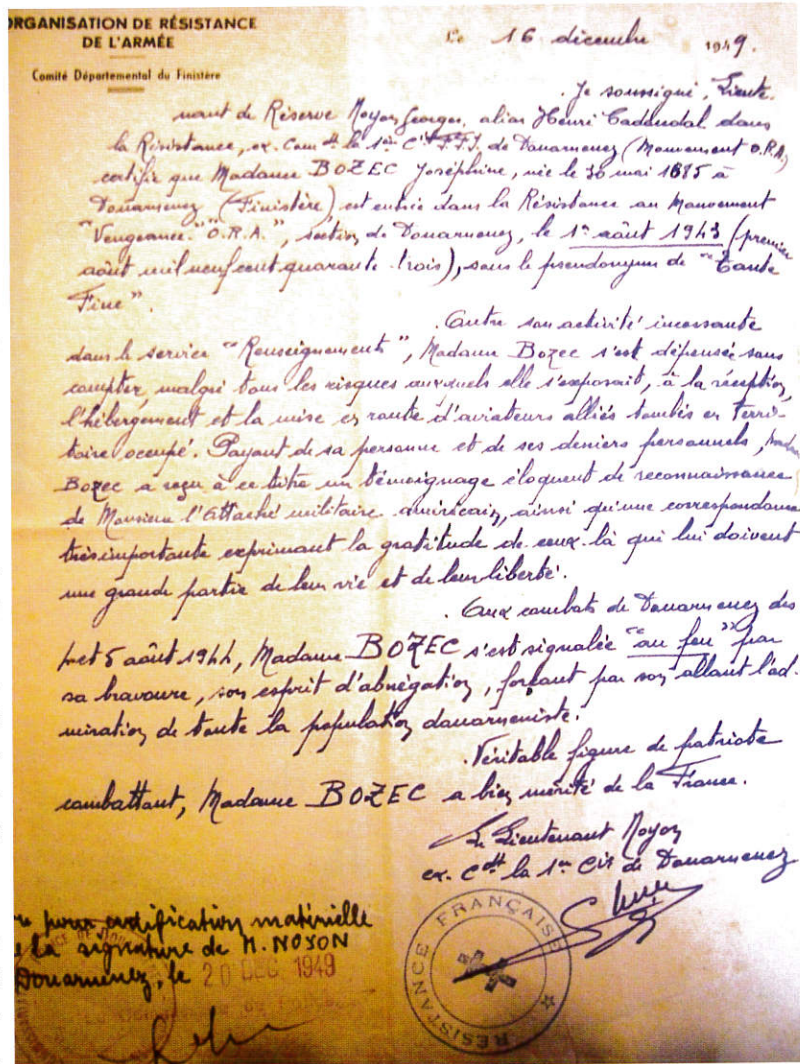 ORGANISATION DE RÉSISTANCE
DE L'ARMÉE
Comité Départemental du Finistère
Le 16 décembre 1949.
Je soussigné, Lieute-
nant de Réserve Noyon Georges, alias Henri Cadoudal dans
la Résistance, ex. Comdt la 1ère Cie F.F.I. de Douarnenez (Mouvement O.R.A.)
certifie que Madame BOZEC Joséphine, née le 30 mai 1885 à
Douarnenez (Finistère) est entrée dans la Résistance au Mouvement
"Vengeance." "O.R.A.", section de Douarnenez, le 1er août 1943 (premier
août mil neuf cent quarante trois), sous le pseudonyme de "Tante
Fine".
Outre son activité incessante
dans le service "Renseignements", Madame Bozec s'est dépensée sans
compter, malgré tous les risques auxquels elle s'exposait, à la réception,
l'hébergement et la mise en route d'aviateurs alliés tombés en terri-
toire occupé. Payant de sa personne et de ses deniers personnels, Madame
Bozec a reçu à ce titre un témoignage éloquent de reconnaissance
de Monsieur l'Attaché militaire américain, ainsi qu'une correspondance
très importante exprimant la gratitude de ceux-là qui lui doivent
une grande partie de leur vie et de leur liberté.
Aux combats de Douarnenez des
4 et 5 août 1944, Madame BOZEC s'est signalée "au feu" par
sa bravoure, son esprit d'abnégation, forçant par son allant l'ad-
miration de toute la population douarneniste.
Véritable figure de patriote
combattant, Madame BOZEC a bien mérité de la France.
Le Lieutenant Noyon
ex. Cdt la 1ère Cie de Douarnenez
RÉSISTANCE FRANÇAISE
pour certification matérielle
la signature de M. NOYON
Douarnenez, le 20 DEC 1949